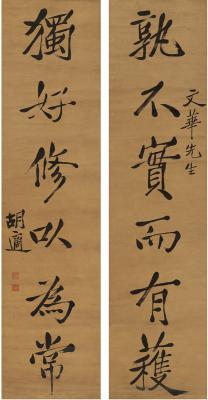 孰不實而有穫
文華先生
獨好修以為常
胡適